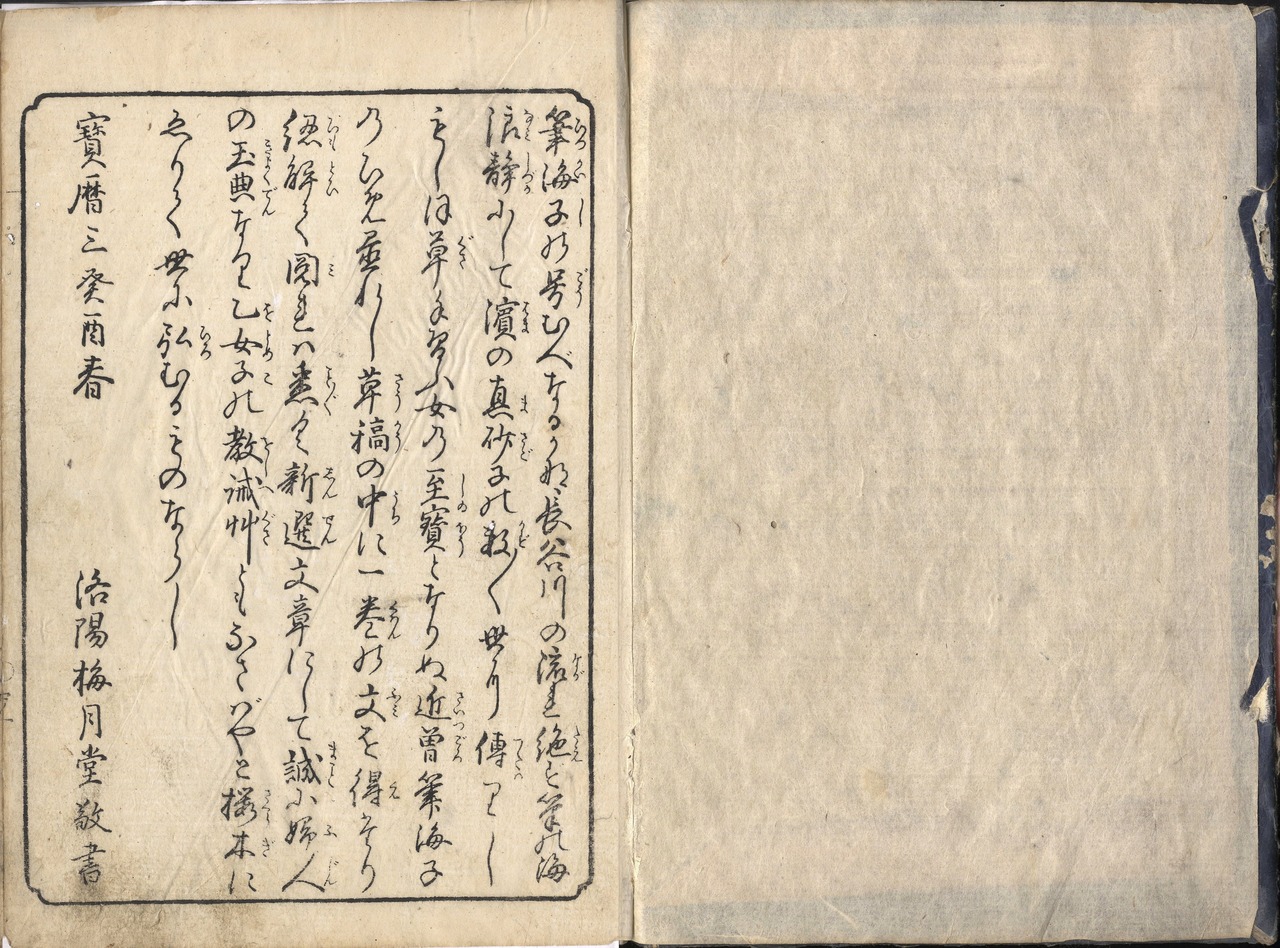 筆海子の号むべなるかな長谷川の流れ絶ず筆の海
浪静にして濱の真砂子の数〱世に傳りし
もしほ草手習ふ女の至寶となりぬ近曾筆海子
のひめ置れし草稿の中に一巻の文を得たり
繙解て閲れバ悉く新選文章にして誠に婦人
の玉典なり乙女子の教誡艸ともなさバやと桜木に
ゑりて世に弘むるものならし
寶暦三癸酉春
洛陽梅月堂敬書